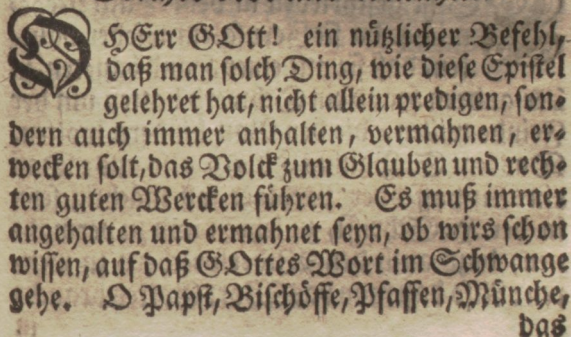 O HErr GOtt! ein nützlicher Befehl,
daß man solch Ding, wie diese Epistel
gelehret hat, nicht allein predigen, son-
dern auch immer anhalten, vermahnen, er-
wecken solt, das Volck zum Glauben und rech-
ten guten Wercken führen. Es muß immer
angehalten und ermahnet seyn, ob wirs schon
wissen, auf daß GOttes Wort im Schwange
gehe. O Papst, Bischöffe, Pfaffen, Münche,
das